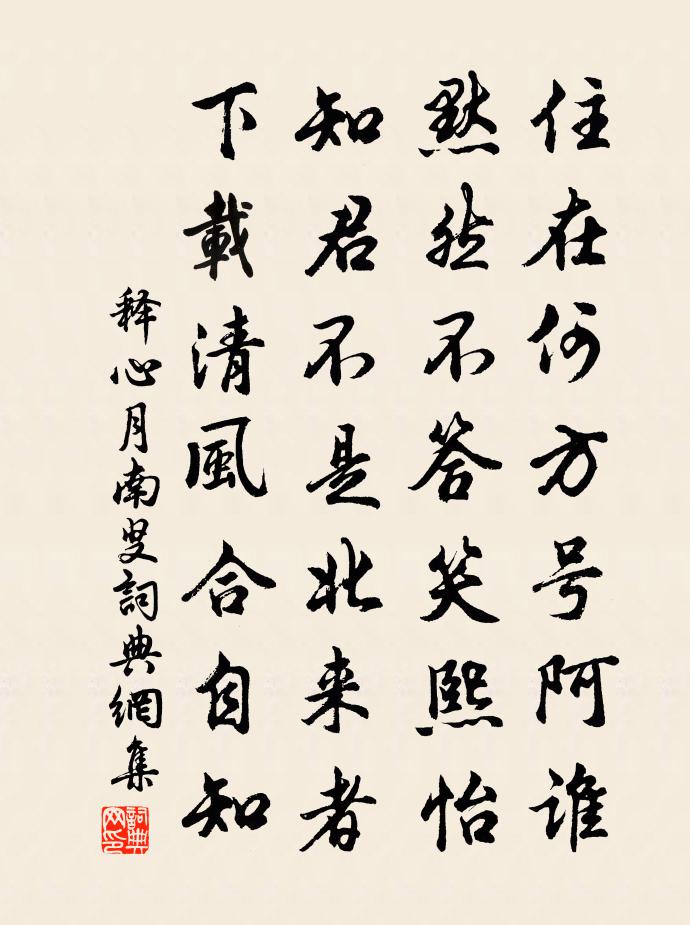 住在何方号阿谁
默然不答笑熙怡
知君不是北来者
下載清風合自知
释心月南叟詞典網集
詞典网印